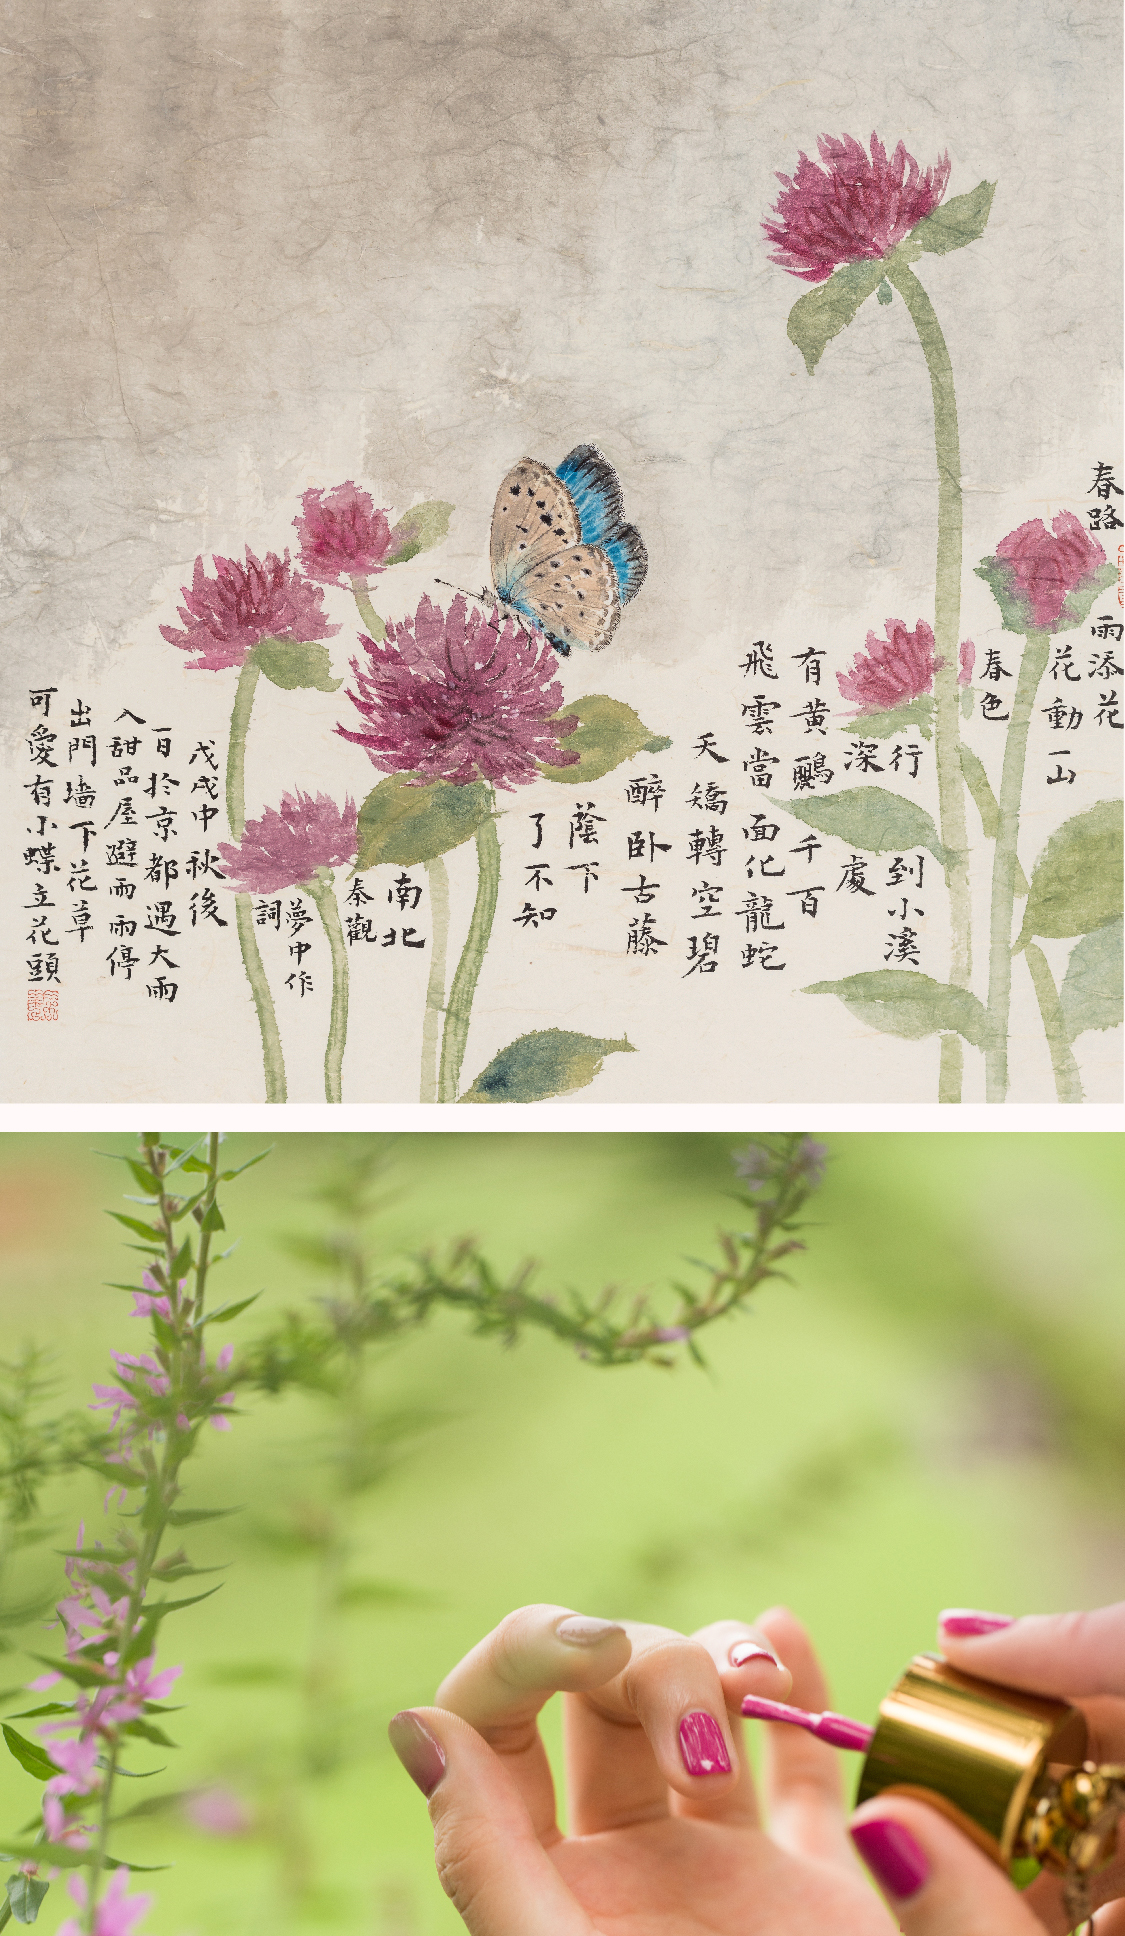 春路雨添花
花動一山
春色
行到小溪
深處
有黃鸝千百
飛雲當面化龍蛇
夭矯轉空碧
醉卧古藤
蔭下
了不知
南北
秦觀
夢中作
詞
戊戌中秋後
一日於京都遇大雨
入甜品屋避雨雨停
出門墙下花草
可愛有小蝶立花頭